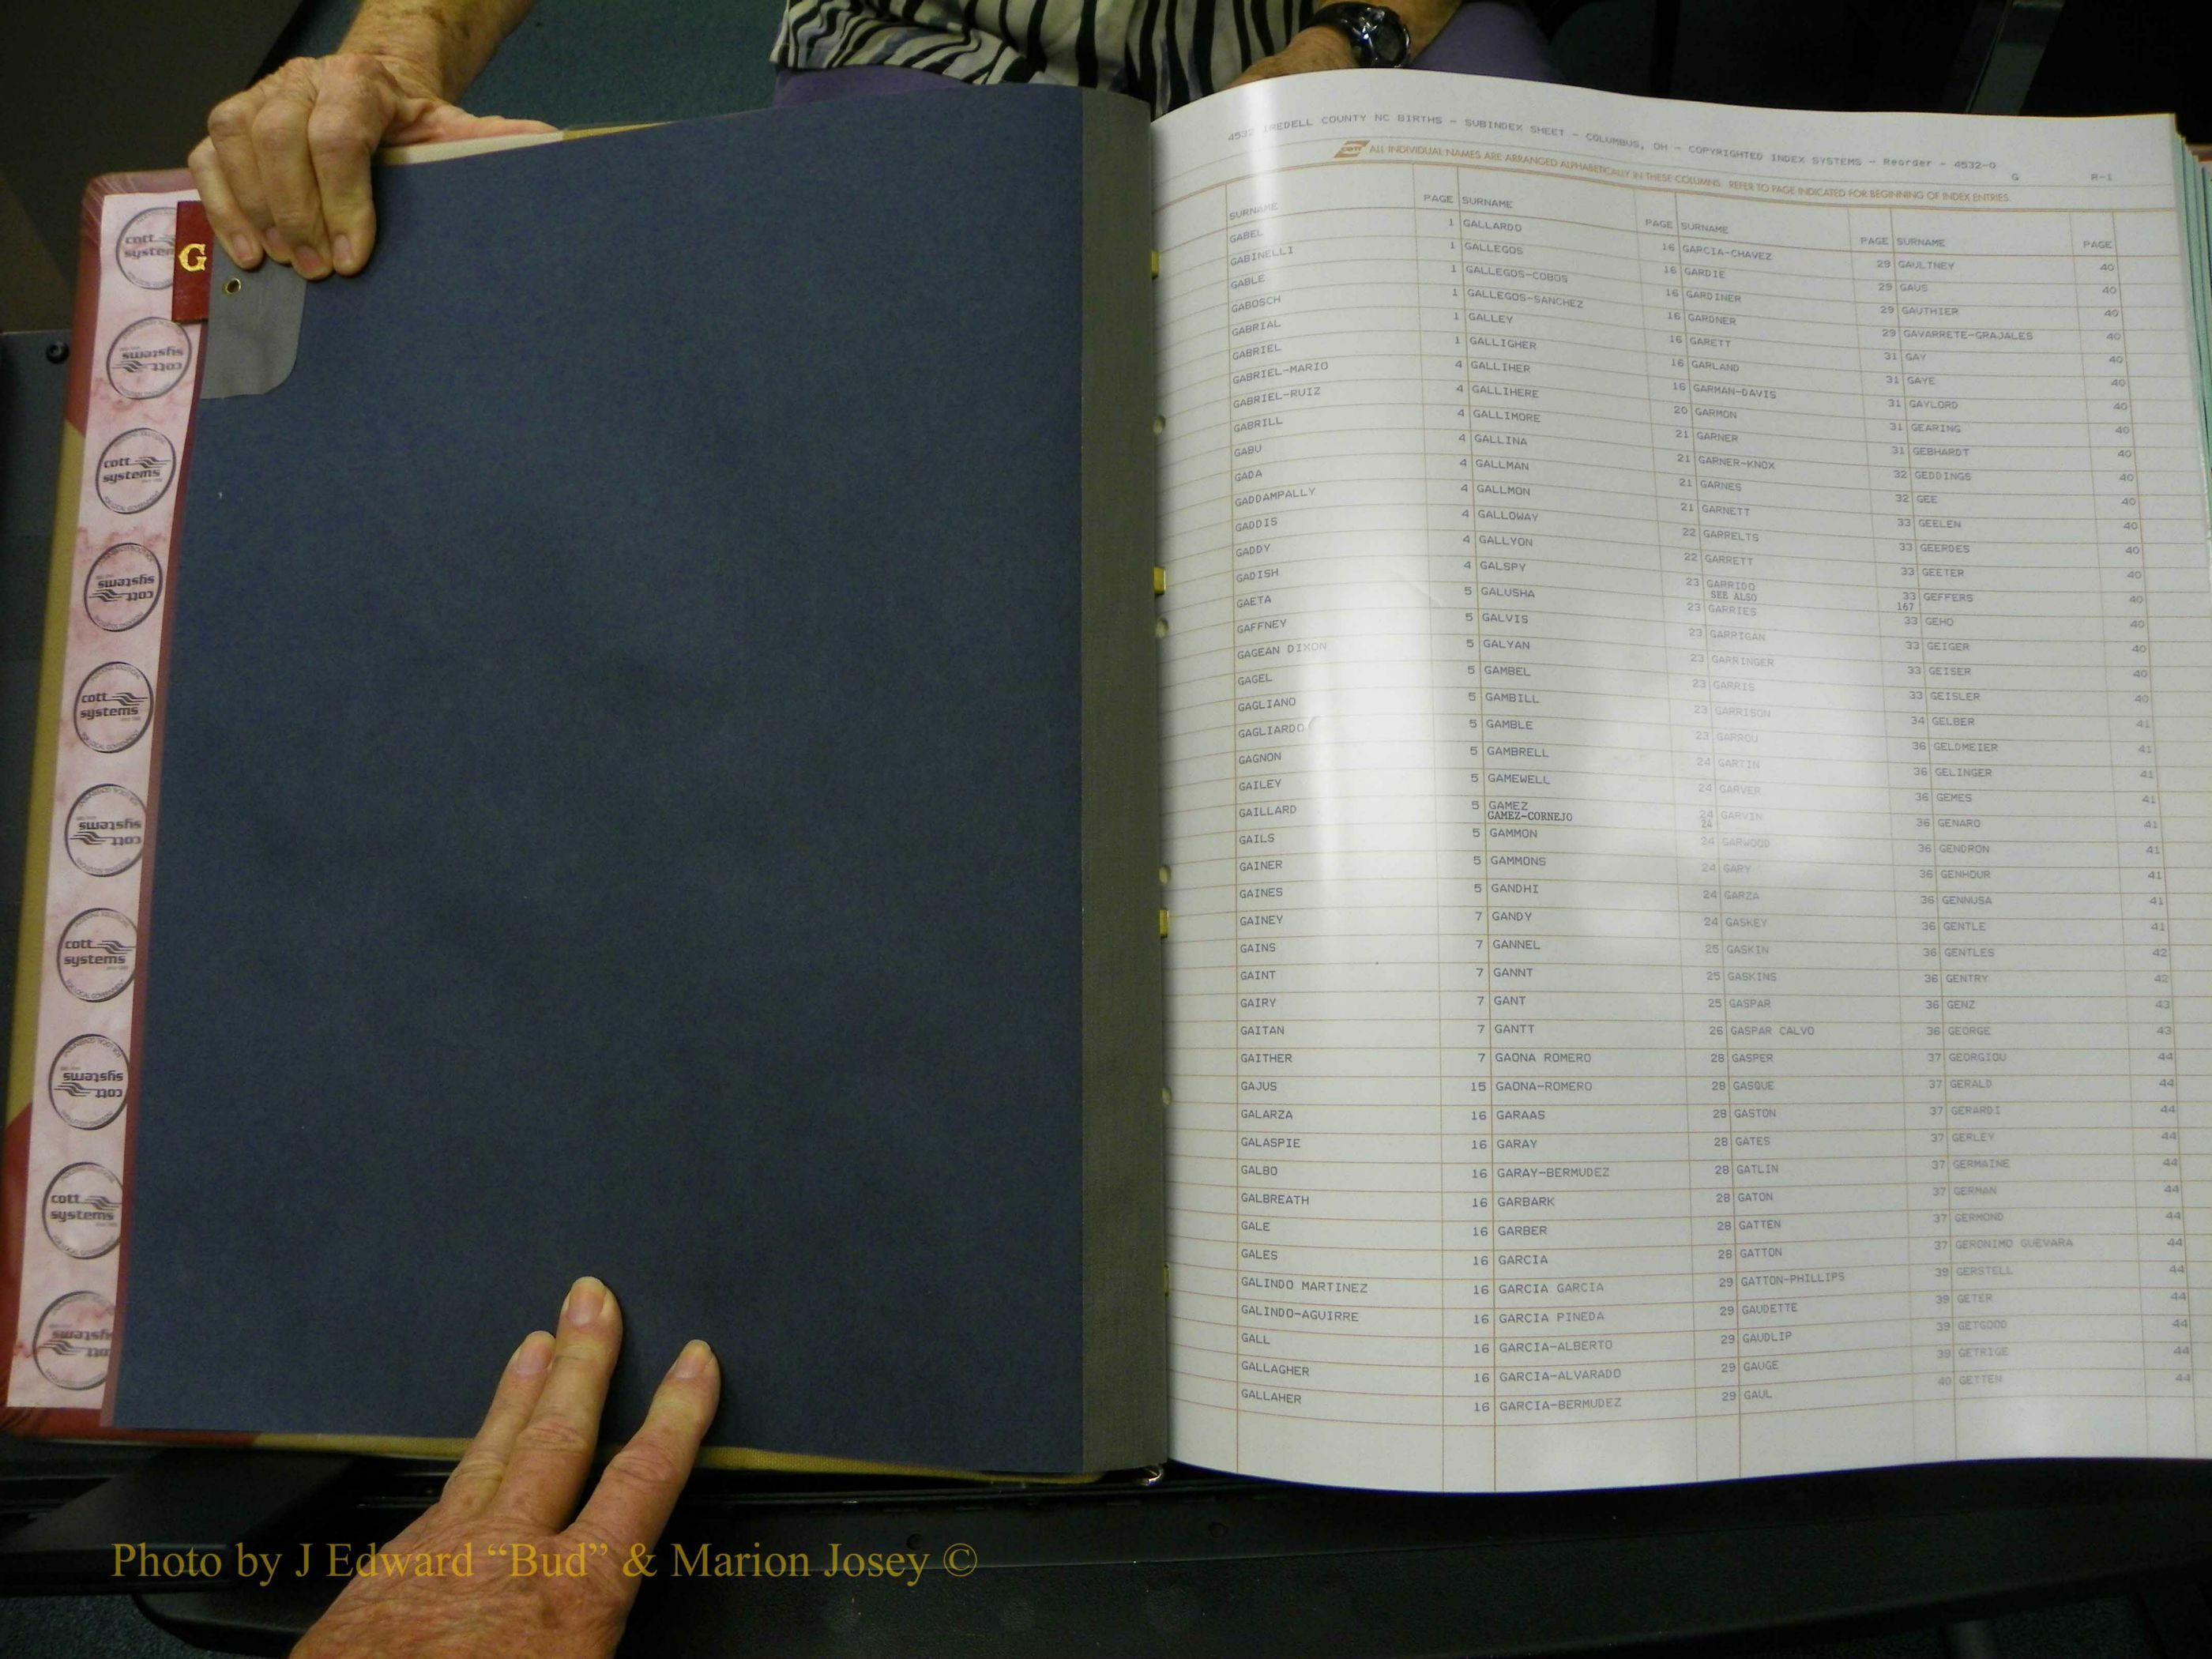 4532 IREDELL COUNTY NC BIRTHS - SUBINDEX SHEET - COLUMBUS, OH - COPYRIGHTED INDEX SYSTEMS - Reorder - 4532-0
G R-1
cott ALL INDIVIDUAL NAMES ARE ARRANGED ALPHABETICALLY IN THESE COLUMNS. REFER TO PAGE INDICATED FOR BEGINNING OF INDEX ENTRIES.
SURNAME PAGE SURNAME PAGE SURNAME PAGE SURNAME PAGE
GABEL 1 GALLARDO 16 GARCIA-CHAVEZ 29 GAULTNEY 40
GABINELLI 1 GALLEGOS 16 GARDIE 29 GAUS 40
GABLE 1 GALLEGOS-COBOS 16 GARDINER 29 GAUTHIER 40
GABOSCH 1 GALLEGOS-SANCHEZ 16 GARDNER 29 GAVARRETE-GRAJALES 40
GABRIAL 1 GALLEY 16 GARETT 31 GAY 40
GABRIEL 1 GALLIGHER 16 GARLAND 31 GAYE 40
GABRIEL-MARIO 4 GALLIHER 16 GARMAN-DAVIS 31 GAYLORD 40
GABRIEL-RUIZ 4 GALLIHERE 20 GARMON 31 GEARING 40
GABRILL 4 GALLIMORE 21 GARNER 31 GEBHARDT 40
GABU 4 GALLINA 21 GARNER-KNOX 32 GEDDINGS 40
GADA 4 GALLMAN 21 GARNES 32 GEE 40
GADDAMPALLY 4 GALLMON 21 GARNETT 33 GEELEN 40
GADDIS 4 GALLOWAY 22 GARRELTS 33 GEERDES 40
GADDY 4 GALLYON 22 GARRETT 33 GEETER 40
GADISH 4 GALSPY 23 GARRIDO 33 GEFFERS 40
SEE ALSO 167
GAETA 5 GALUSHA 23 GARRIES 33 GEHO 40
GAFFNEY 5 GALVIS 23 GARRIGAN 33 GEIGER 40
GAGEAN DIXON 5 GALYAN 23 GARRINGER 33 GEISER 40
GAGEL 5 GAMBEL 23 GARRIS 33 GEISLER 40
GAGLIANO 5 GAMBILL 23 GARRISON 34 GELBER 41
GAGLIARDO 5 GAMBLE 23 GARROU 36 GELDMEIER 41
GAGNON 5 GAMBRELL 24 GARTIN 36 GELINGER 41
GAILEY 5 GAMEWELL 24 GARVER 36 GEMES 41
GAILLARD 5 GAMEZ 24 GARVIN 36 GENARO 41
GAMEZ-CORNEJO 24
GAILS 5 GAMMON 24 GARWOOD 36 GENDRON 41
GAINER 5 GAMMONS 24 GARY 36 GENHOUR 41
GAINES 5 GANDHI 24 GARZA 36 GENNUSA 41
GAINEY 7 GANDY 24 GASKEY 36 GENTLE 41
GAINS 7 GANNEL 25 GASKIN 36 GENTLES 42
GAINT 7 GANNT 25 GASKINS 36 GENTRY 42
GAIRY 7 GANT 25 GASPAR 36 GENZ 43
GAITAN 7 GANTT 26 GASPAR CALVO 36 GEORGE 43
GAITHER 7 GAONA ROMERO 28 GASPER 37 GEORGIOU 44
GAJUS 15 GAONA-ROMERO 28 GASQUE 37 GERALD 44
GALARZA 16 GARAAS 28 GASTON 37 GERARDI 44
GALASPIE 16 GARAY 28 GATES 37 GERLEY 44
GALBO 16 GARAY-BERMUDEZ 28 GATLIN 37 GERMAINE 44
GALBREATH 16 GARBARK 28 GATON 37 GERMAN 44
GALE 16 GARBER 28 GATTEN 37 GERMOND 44
GALES 16 GARCIA 28 GATTON 37 GERONIMO GUEVARA 44
GALINDO MARTINEZ 16 GARCIA GARCIA 29 GATTON-PHILLIPS 39 GERSTELL 44
GALINDO-AGUIRRE 16 GARCIA PINEDA 29 GAUDETTE 39 GETER 44
GALL 16 GARCIA-ALBERTO 29 GAUDLIP 39 GETGOOD 44
GALLAGHER 16 GARCIA-ALVARADO 29 GAUGE 39 GETRIGE 44
GALLAHER 16 GARCIA-BERMUDEZ 29 GAUL 40 GETTEN 44
G
cott systems
cott systems
cott systems
cott systems
cott systems
cott systems
cott systems
cott systems
cott systems
cott systems
Photo by J Edward “Bud” & Marion Josey ©